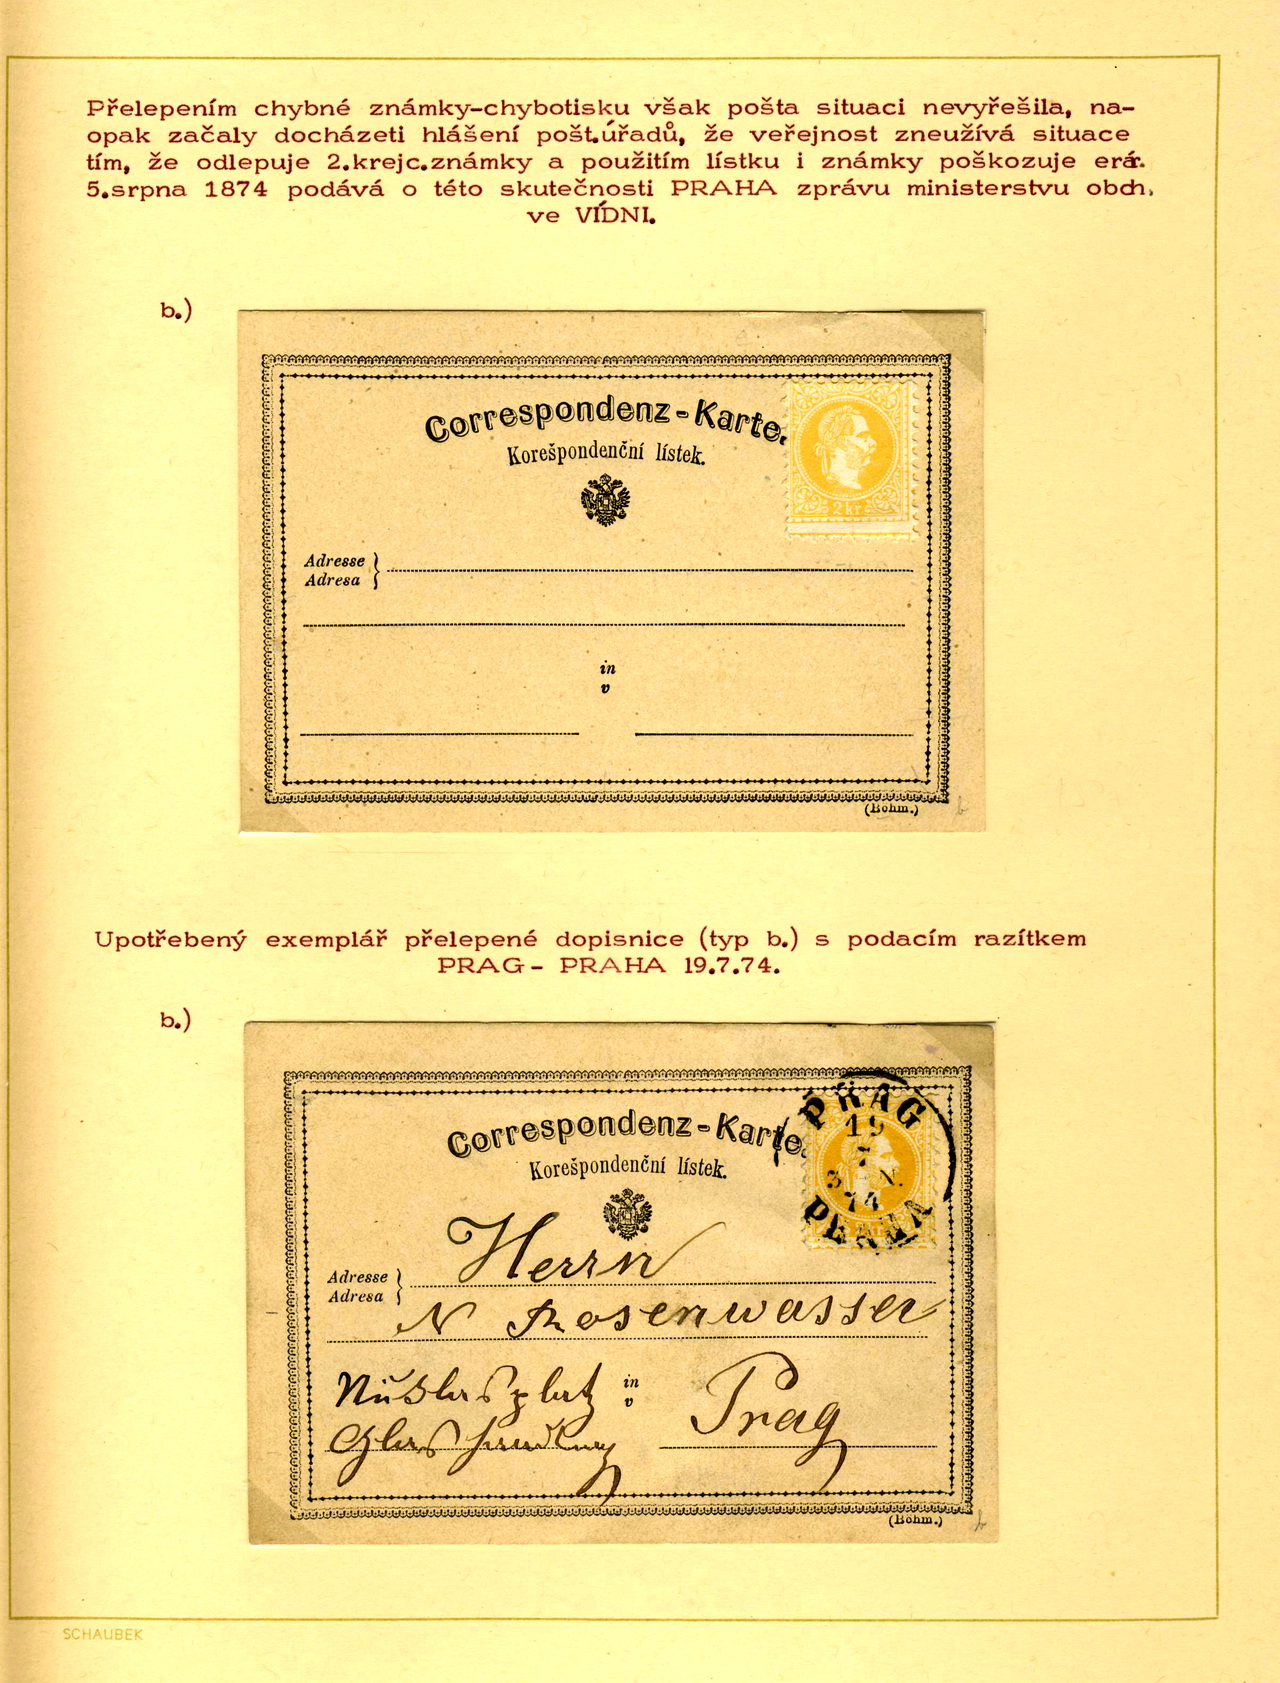 Přelepením chybné známky-chybotisku však pošta situaci nevyřešila, na-
opak začaly docházeti hlášení pošt.úřadů, že veřejnost zneužívá situace
tím, že odlepuje 2.krejc.známky a použitím lístku i známky poškozuje erár.
5.srpna 1874 podává o této skutečnosti PRAHA zprávu ministerstvu obch.
ve VÍDNI.
b.)
Correspondenz-Karte.
Korešpondenční lístek.
2 kr.
Adresse
Adresa
in
v
(Böhm.)
b
Upotřebený exemplář přelepené dopisnice (typ b.) s podacím razítkem
PRAG- PRAHA 19.7.74.
b.)
PRAG
19
7
3 N.
74
Correspondenz-Karte.
Korešpondenční lístek.
Herrn
Adresse
Adresa
N Rosenwasser
in
v
Prag
(Böhm.)
b
SCHAUBEK